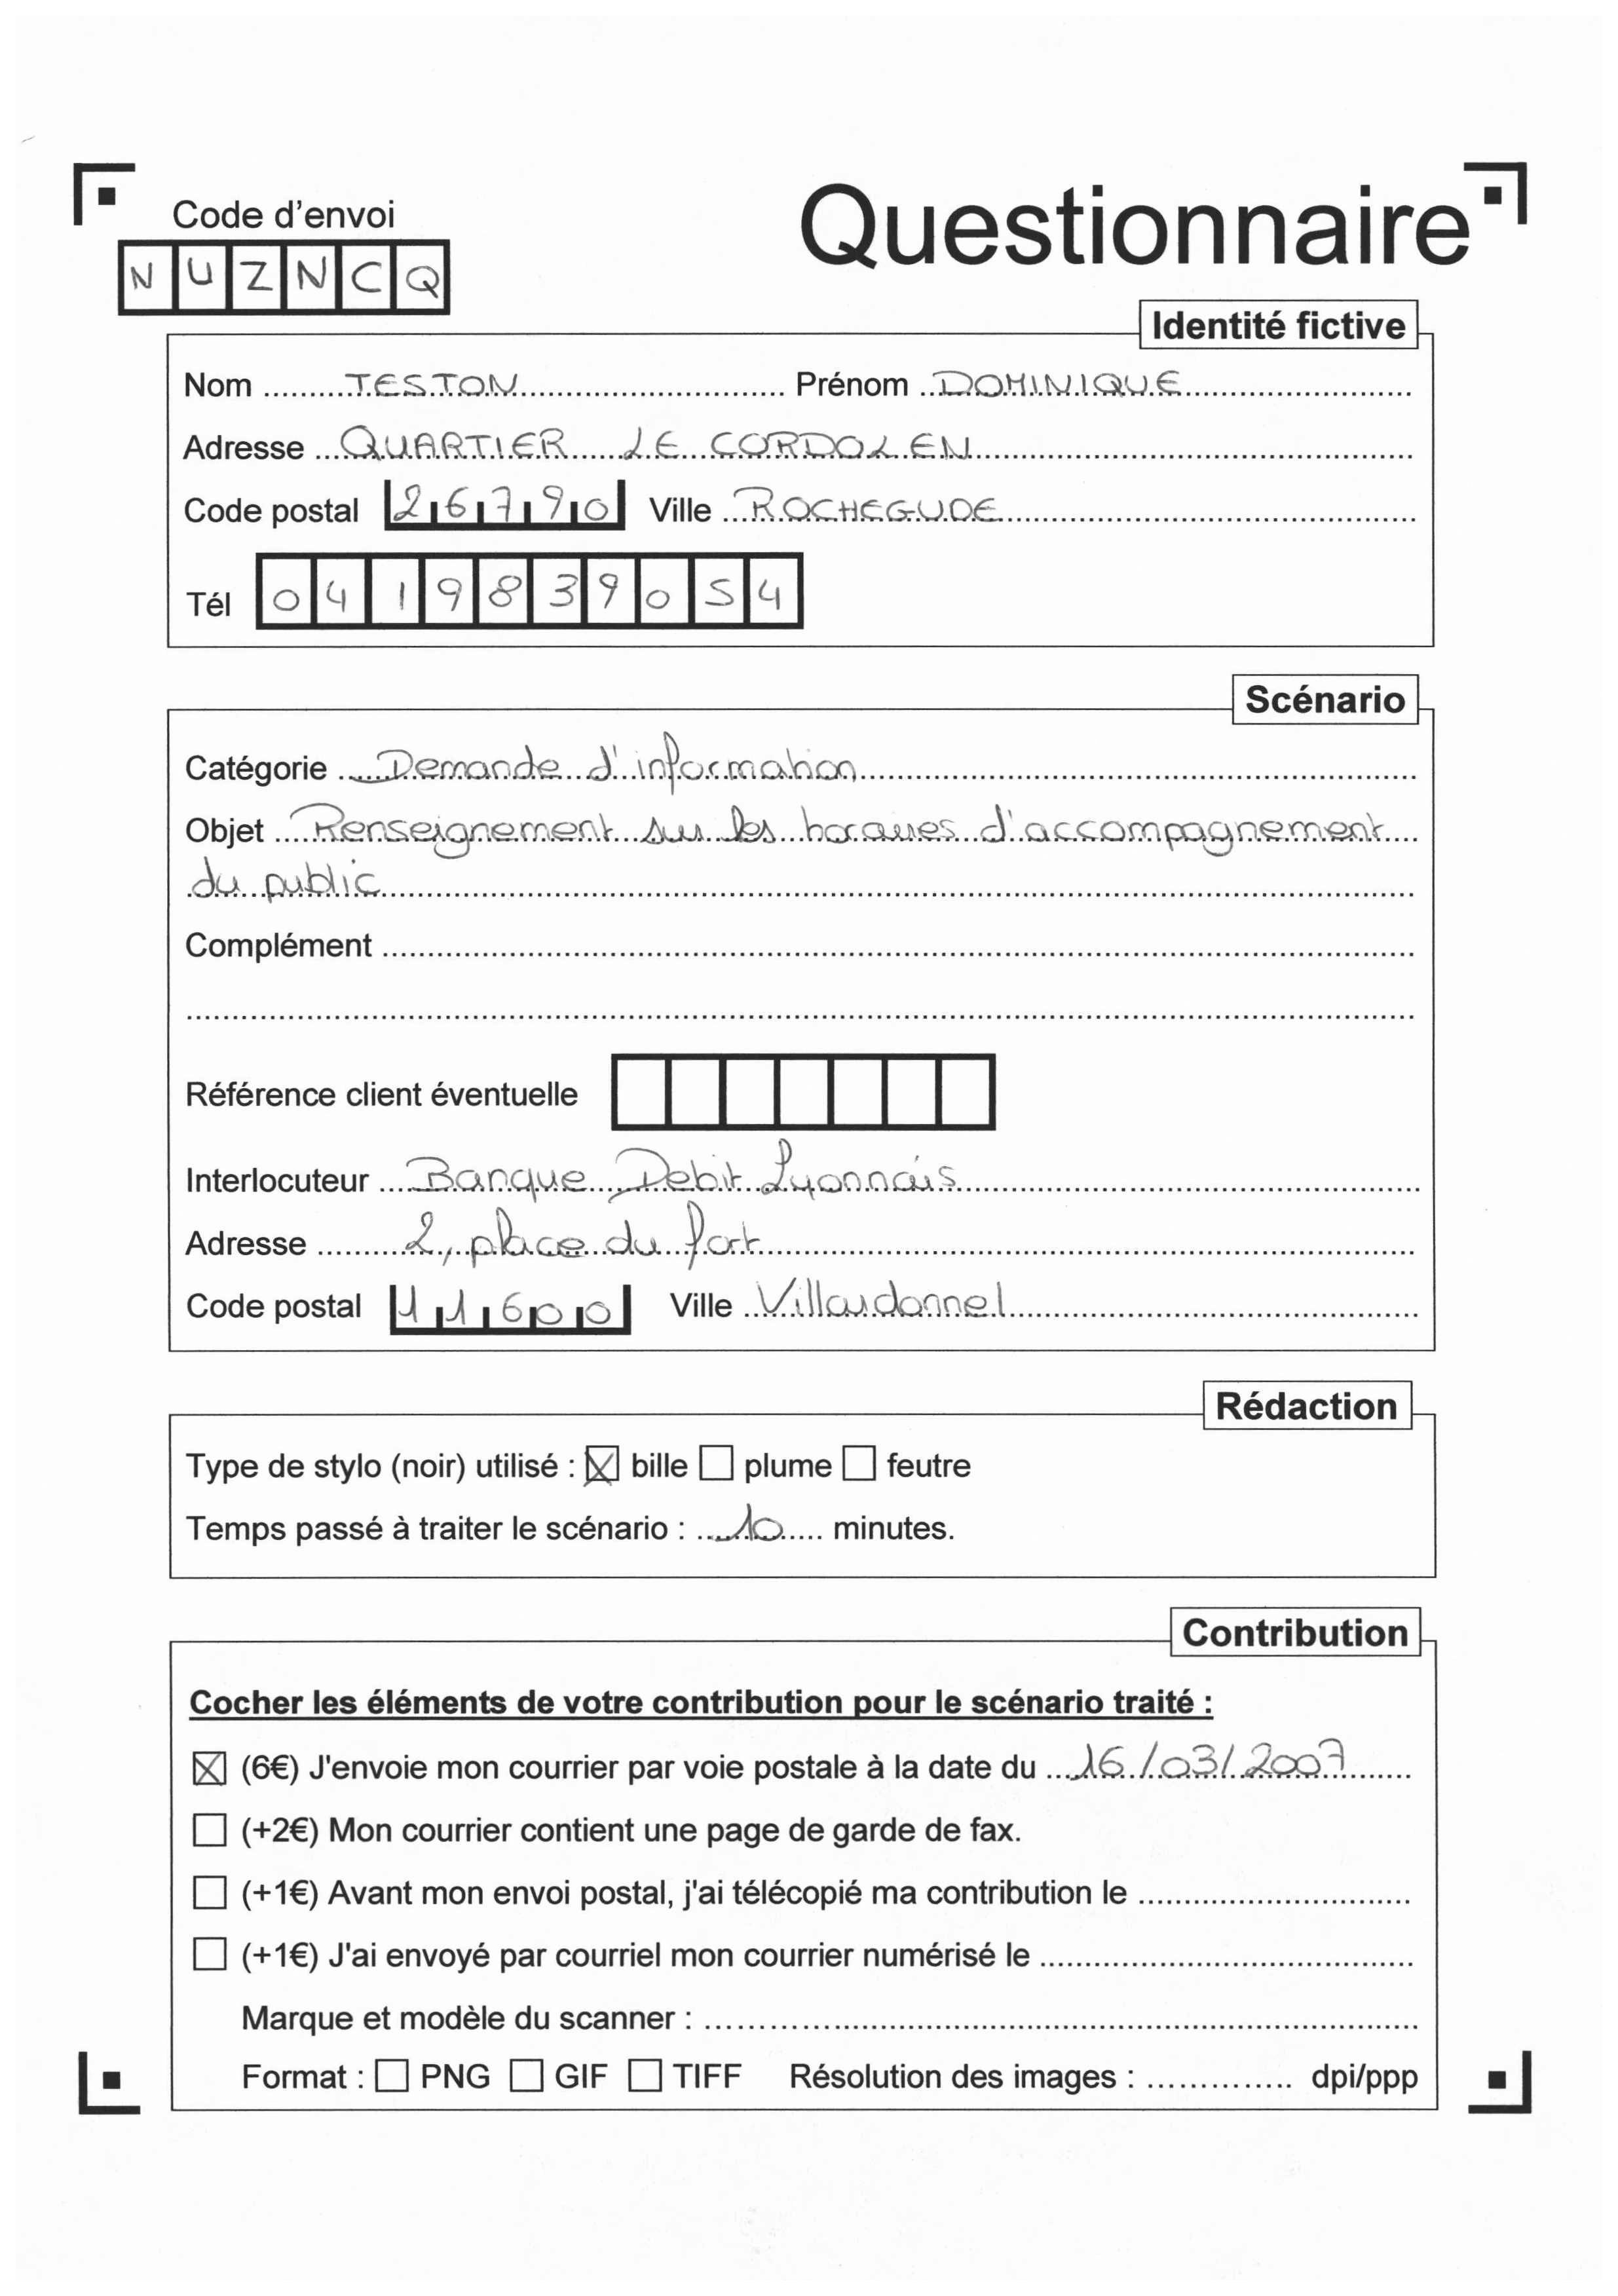 Code d'envoi
Questionnaire
NUZNCQ
Identité fictive
Nom TESTON Prénom DOMINIQUE
Adresse QUARTIER LE CORDOLEN
Code postal 26790 Ville ROCHEGUDE
Tél 0419839054
Scénario
Catégorie Demande d'information
Objet Renseignement sur les horaires d'accompagnement
du public
Complément
Référence client éventuelle
Interlocuteur Banque Debit Lyonnais
Adresse 2, place du fort
Code postal 11600 Ville Villardonnel
Rédaction
Type de stylo (noir) utilisé : ☒ bille ☐ plume ☐ feutre
Temps passé à traiter le scénario : 10 minutes.
Contribution
Cocher les éléments de votre contribution pour le scénario traité :
☒ (6€) J'envoie mon courrier par voie postale à la date du 16/03/2007
☐ (+2€) Mon courrier contient une page de garde de fax.
☐ (+1€) Avant mon envoi postal, j'ai télécopié ma contribution le
☐ (+1€) J'ai envoyé par courriel mon courrier numérisé le
Marque et modèle du scanner :
Format : ☐ PNG ☐ GIF ☐ TIFF Résolution des images : dpi/ppp